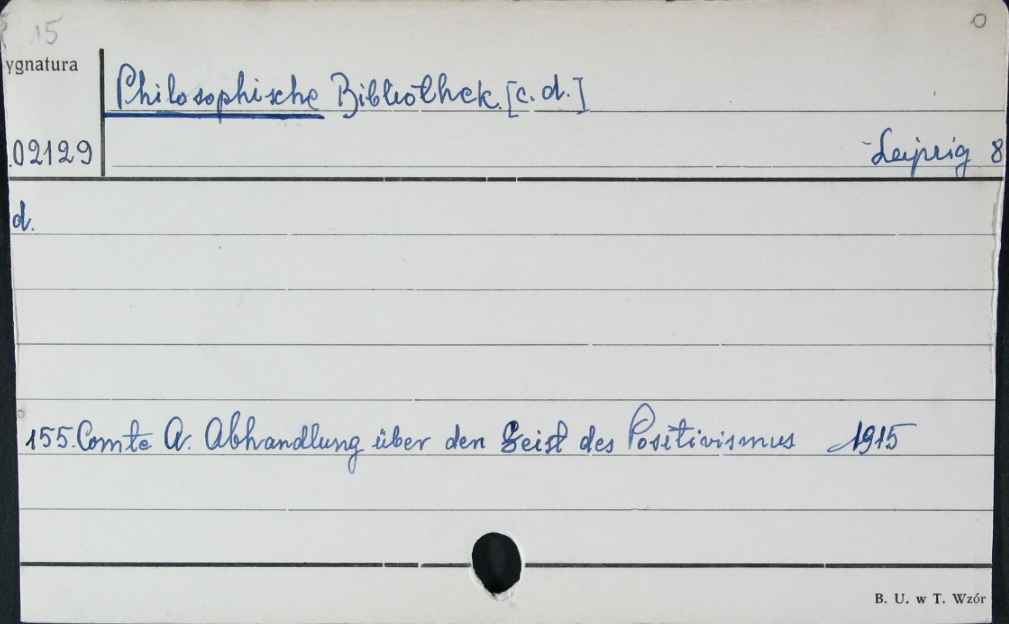 15
0
ygnatura
Philosophische Bibliothek. [c. d.]
02129
Leipzig 8
d.
155. Comte A. Abhandlung über den Geist des Positivismus 1915
B. U. w T. Wzór